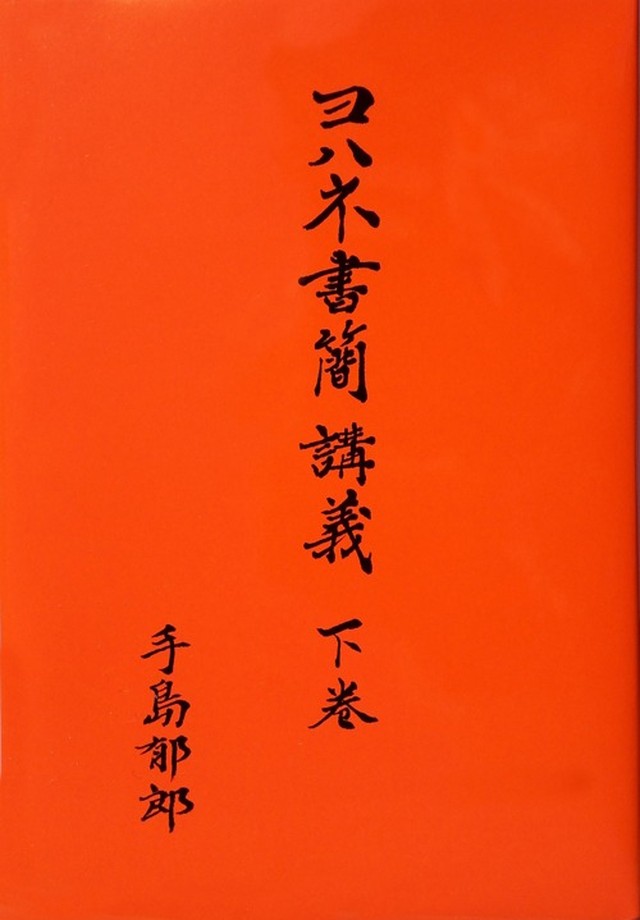 ヨハネ書簡講義 下巻
手島郁郎